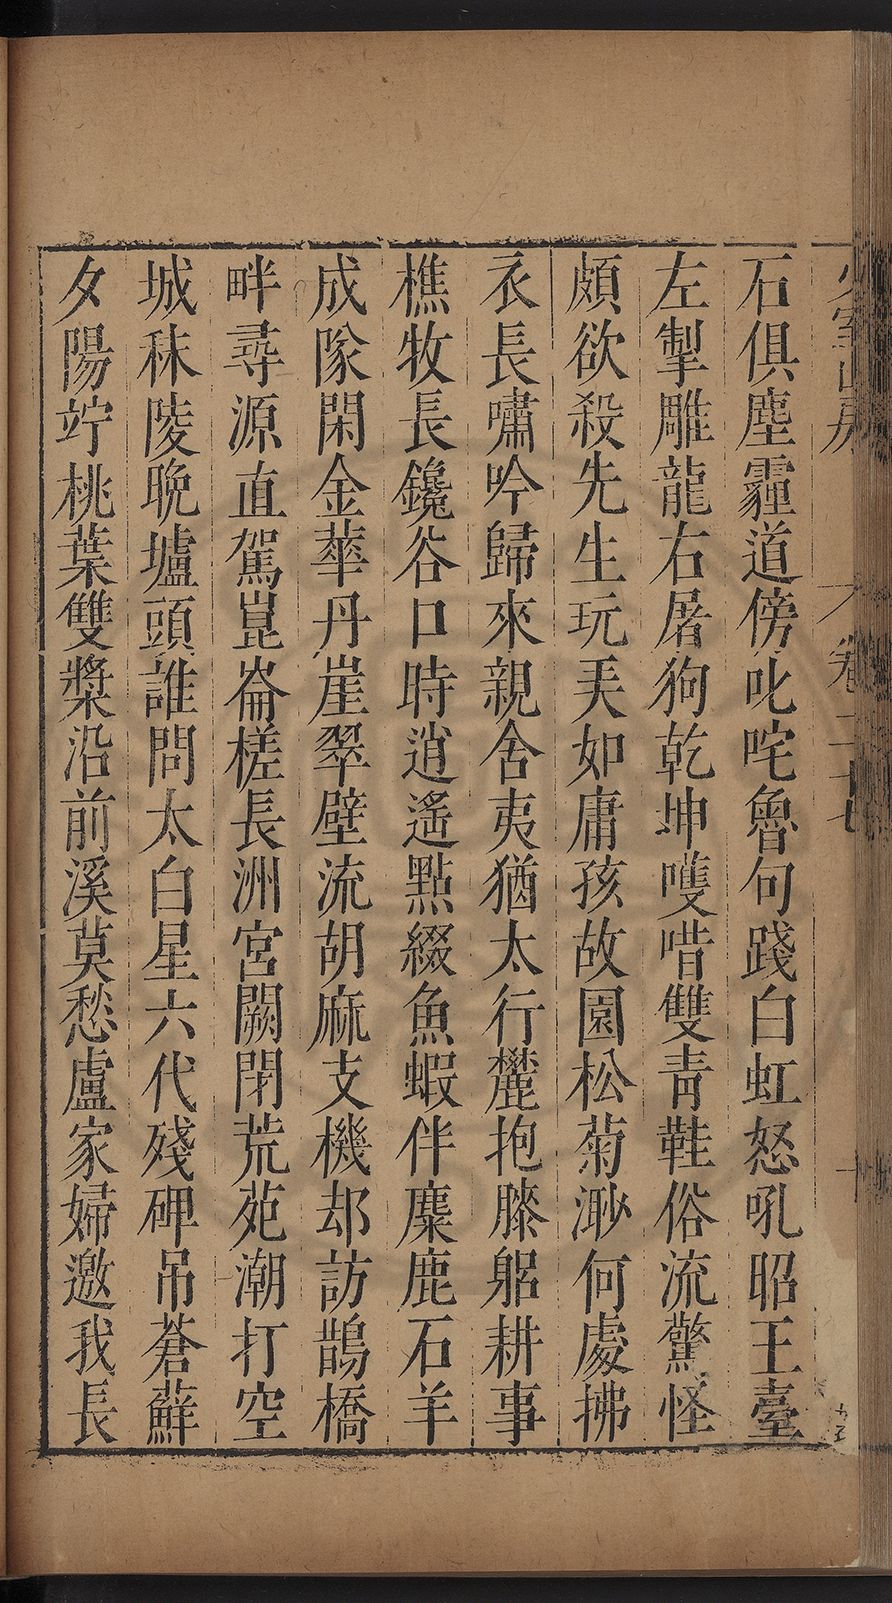 石俱塵霾道傍叱咤魯句踐白虹怒吼昭王臺
左掣雕龍右屠狗乾坤嚄唶雙青鞋俗流驚怪
頗欲殺先生玩美如庸孩故園松菊渺何處拂
衣長嘯吟歸來親舍夷猶太行麓抱膝躬耕事
樵牧長鑱谷口時逍遙點綴魚蝦伴麋鹿石羊
成隊閑金華丹崖翠壁流胡麻支機却訪鵲橋
畔尋源直駕崑崙槎長洲宮闕閉荒苑潮打空
城秣陵晚壚頭誰問太白星六代殘碑吊蒼蘚
夕陽竚桃葉雙槳沿前溪莫愁盧家婦邀我長